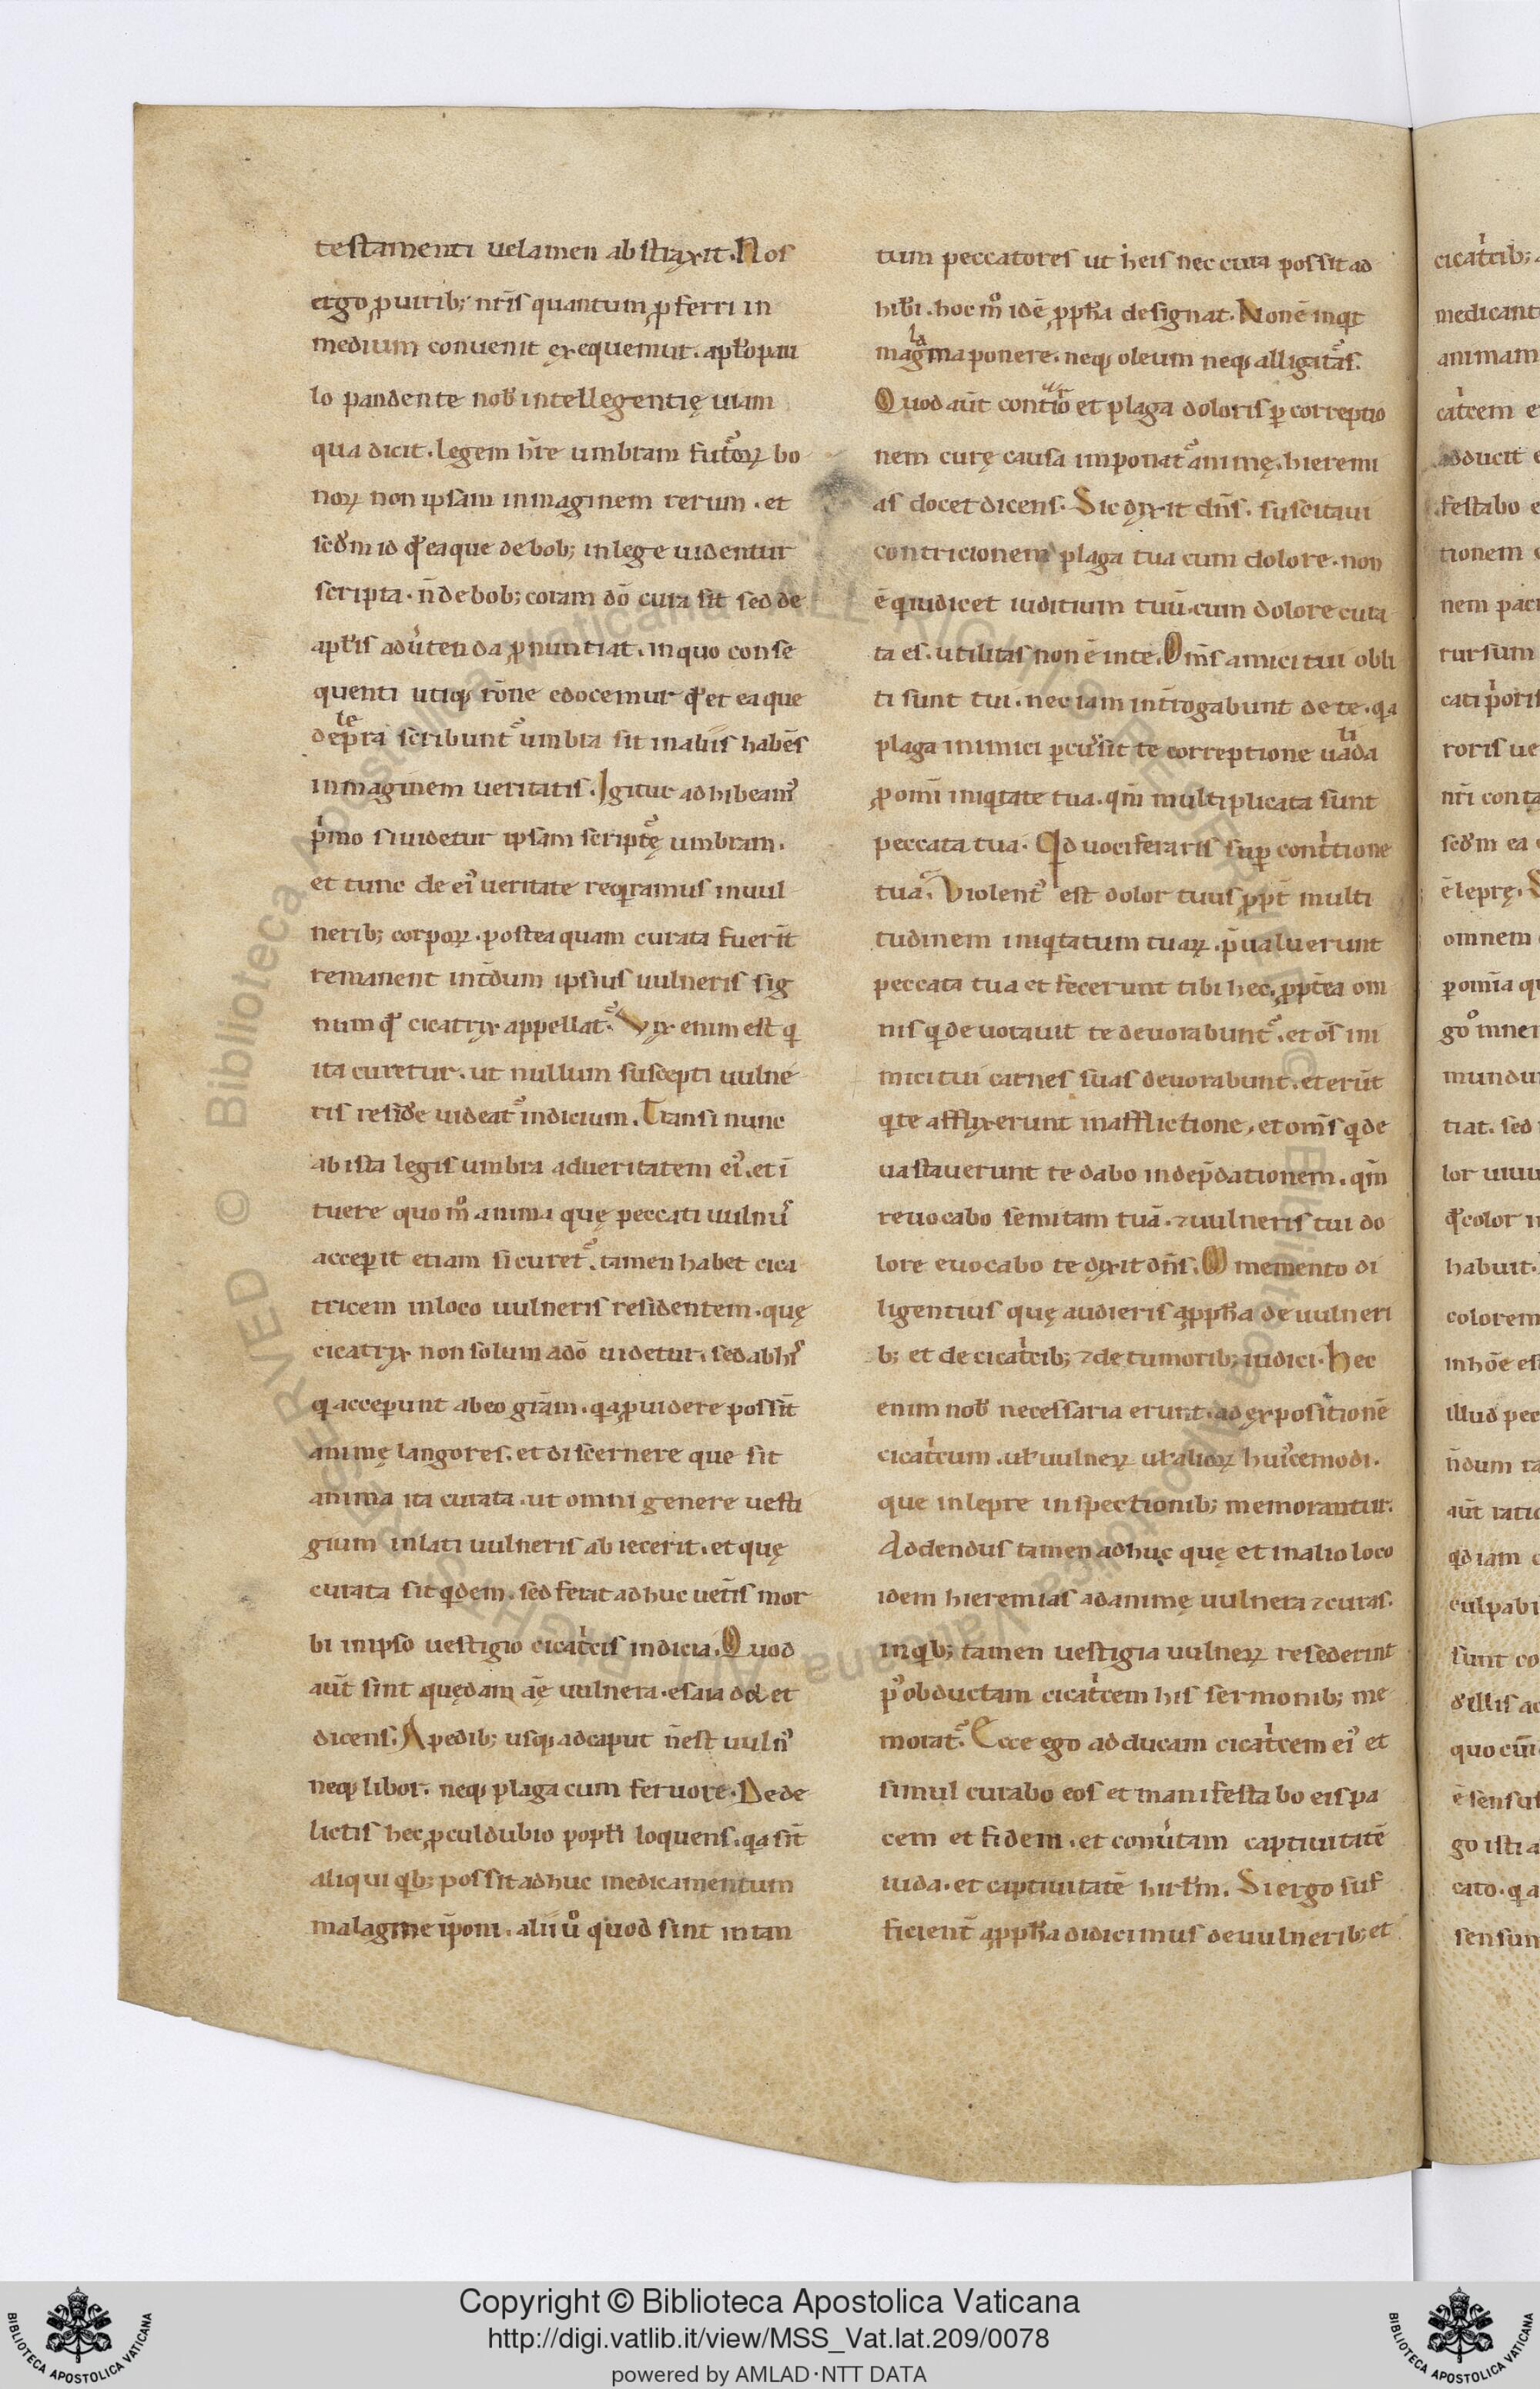 testamenti uelamen abstraxit. Nos
ergo ꝓ uirib; nr̄is quantum ꝓferri in
medium conuenit exequemur. apłopau
lo pandente nob̄ intellegentię uiam
qua dicit. legem hr̄e umbram futuroꝝ bo
noꝝ non ipsam inmaginem rerum. et
scd̄m id qd̓ ea que de bob; in lege uidentur
scripta. n̄ de bob; coram dō cura sit sed de
apłis aduertenda ꝓnuntiat. in quo conse
quenti utiq; rōne edocemur qd̓ et ea que
de lepra scribunt᷑ umbra sit in aliis habēs
inmaginem ueritatis. Igitur adhibeam᷒
pͥmo si uidetur ipsam scriptę᷑ umbram.
et tunc de ei᷒ ueritate reqͥramus in uul
nerib; corpoꝝ. postea quam curata fuerīt
remanent int̄dum ipsius uulneris sig
num qd̓ cicatrix appellat᷑. Vix enim est qͥ
ita curetur. ut nullum suscepti uulne
ris reside uideat᷑ indicium. Transi nunc
ab ista legis umbra ad ueritatem ei᷒. et ī
tuere quom̊ anima quę peccati uuln᷒
acceꝑit etiam si curet᷑. tamen habet cica
tricem in loco uulneris residentem. quę
cicatrix non solum a dō uidetur. sed ab hi᷒
qͥ acceꝑunt ab eo grām. qͣ ꝓuidere possīt
animę langores. et discernere que sit
anima ita curata. ut omni genere uesti
gium inlati uulneris abiecerit. et quę
curata sit qͥdem. sed ferat adhuc uet̄is mor
bi in ipso uestigio cicatͥcis indicia. Quod
aūt sint quędam aę̄ uulnera. esaia docet
dicens. A pedib; usq; ad caput n̄ est uuln᷒
neq; libor. neq; plaga cum feruore. De de
lictis hec ꝓculdubio popłi loquens. qͣ sīt
aliqui qͥb; possit adhuc medicamentum
malagme īponi. alii ů quod sint in tan
tum peccatores ut h̓ eis nec cura possit ad
hib̓i. hoc m̊ idē ꝓph̄a designat. Non ē inqͥt
malagma ponere. neq; oleum neq; alligat᷑as.
Quod aūt contͥtio et plaga doloris ꝑ correptio
nem curę causa imponat᷑ animę. hieremi
as docet dicens. Sic dixit dn̄s. suscitaui
contricionem plaga tua cum dolore. non
ē qͥ iudicet iuditium tuū. cum dolore cura
ta es. utilitas non ē in te. Om̄s amici tui obli
ti sunt tui. nec iam int̄rogabunt de te. qͣ
plaga inimici ꝑcussit te correptione ualida
ꝓ omī iniqͥtate tua. qm̄ multiplicata sunt
peccata tua. Qͥd uociferaris suꝑ contͥtione
tua. Violent᷒ est dolor tuus ꝓpt̄ multi
tudinem iniqͥtatum tuaꝝ. p̄ualuerunt
peccata tua et fecerunt tibi hec. ꝓpt̄ea om
nis qͥ deuorauit te deuorabunt᷑. et om̄s ini
mici tui carnes suas deuorabunt. et erūt
qͥ te afflixerunt in afflictione. et om̄s qͥ de
uastauerunt te dabo in dep̄dationem. qm̄
reuocabo semitam tuā. ⁊ uulneris tui do
lore euocabo te dixit dn̄s. Memento di
ligentius quę audieris a ꝓph̄a de uulneri
b; et de cicatͥcib; ⁊ de tumorib; iudici. Hec
enim nob̄ necessaria erunt. ad expositionē
cicatͥcum. uł uulneꝝ uł alioꝝ hui᷒cemodi.
que in lepre inspectionib; memorantur.
Addendus tamen adhuc quę et in alio loco
idem hieremias ad animę uulnera ⁊ curas.
in qͥb; tamen uestigia uulneꝝ resederint
p᷒ obductam cicatͥcem his sermonib; me
morat᷑. Ecce ego adducam cicatͥcem ei᷒ et
simul curabo eos et manifestabo eis pa
cem et fidem. et conūtam captiuitatē
iuda. et captiuitatē hirłm. Si ergo suf
ficient̄ a ꝓph̄a didicimus de uulnerib; et
cicatͥcib;
medicant
animam
catͥcem e
adducit e
festabo e
tionem
nem paci
rursum
cati pͥoris
roris ue
nr̄i conta
scd̄m ea
ē leprę.
omnem
ꝑ omīa qu
go᷒ in nei
mundu
tiat. sed
lor uiuu
qd̓ color i
habuit.
colorem
in hōe es
illud pec
n̄dum ta
aūt ratio
qd̓ iam c
culpabi
sunt co
d̓ illis ac
quo cūi
ē sensus
go isti a
cato. qͣ
sensun
Copyright © Biblioteca Apostolica Vaticana
http://digi.vatlib.it/view/MSS_Vat.lat.209/0078
powered by AMLAD·NTT DATA
BIBLIOTECA APOSTOLICA VATICANA
BIBLIOTECA APOSTOLICA VATICANA
© Biblioteca Apostolica Vaticana ALL RIGHTS RESERVED © Biblioteca Apostolica Vaticana ALL RIGHTS RESERVED